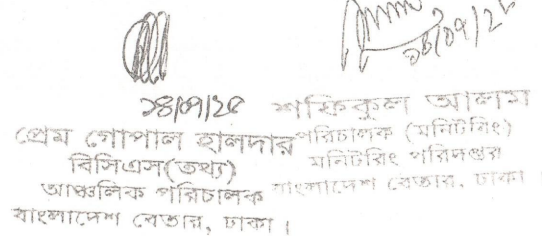 ১৪/০৭/২৫
প্রেম গোপাল হালদার
বিসিএস(তথ্য)
আঞ্চলিক পরিচালক
বাংলাদেশ বেতার, ঢাকা ।
শফিকুল আলম
পরিচালক (মনিটরিং)
মনিটরিং পরিদপ্তর
বাংলাদেশ বেতার, ঢাকা ।